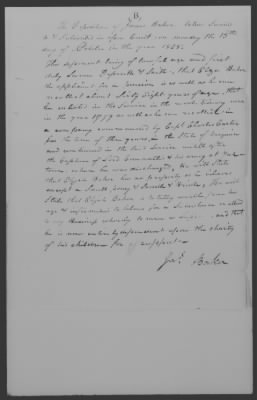 B.
The Deposition of James Baker taken Sworn
to & Subscribed in open Court on monday the 13th
day of October in the year 1828.
The deponent being of lawful age and first
duly Sworn Deposeth & Saith, that Elijah Baker
the applicant for a pension is as well as he now
recollects about Sixty Eight years of age, that
he enlisted in the Service in the revolutionary war
in the year 1779 as well as he now recollects in
a company commanded by Capt Charles Carter
for the term of three years, in the State of Virginia
and continued in the said Service untill after
the Capture of Lord Cornwallis & his army at York
town where he was discharged, He will State
that Elijah Baker has no property as he believes
except a Small &
State that Elijah Baker is totally unable from his
age & infirmities to labour for a Subsistance
to any Business whereby to earn a and that
he is now entirely dependent upon the charity
of his children for a support
Jas. Baker